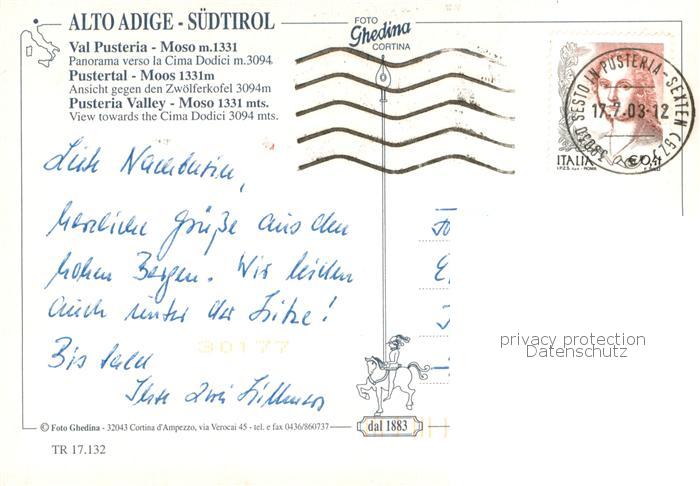 ALTO ADIGE - SÜDTIROL
Val Pusteria - Moso m.1331
Panorama verso la Cima Dodici m.3094
Pustertal - Moos 1331m
Ansicht gegen den Zwölferkofel 3094m
Pusteria Valley - Moso 1331 mts.
View towards the Cima Dodici 3094 mts.
FOTO
Ghedina
CORTINA
39030 SESTO IN PUSTERIA - SEXTEN (BZ)
17.7.03-12
ITALIA € 0,41
I.P.Z.S. S.p.A. - ROMA
Liebe Nachbarin,
herzliche Grüße aus den
hohen Bergen. Wir leiden
auch unter der Hitze!
Bis bald
Ihre zwei
30177
privacy protection
Datenschutz
dal 1883
© Foto Ghedina - 32043 Cortina d'Ampezzo, via Verocai 45 - tel. e fax 0436/860737
TR 17.132